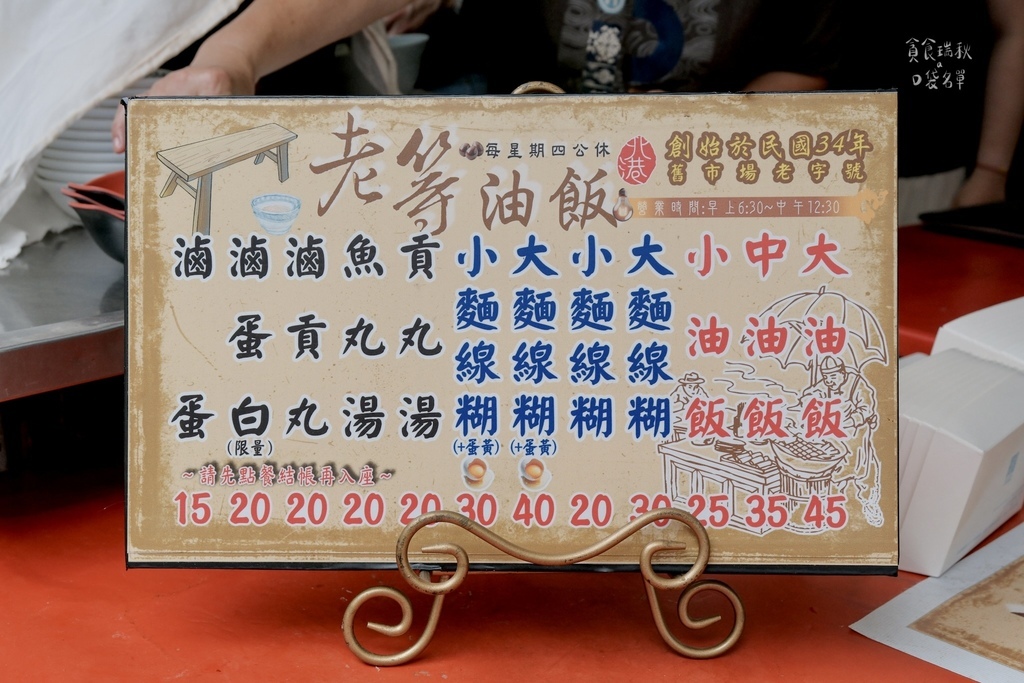 貪食瑞秋
の
口袋名單
老等油飯
每星期四公休
北港
創始於民國34年
舊市場老字號
營業時間:早上6:30~中午12:30
大油飯 45
中油飯 35
小油飯 25
大麵線糊 30
小麵線糊 20
大麵線糊(+蛋黃) 40
小麵線糊(+蛋黃) 30
貢丸湯 20
魚丸湯 20
滷貢丸 20
滷蛋白(限量) 20
滷蛋 15
~請先點餐結帳再入座~